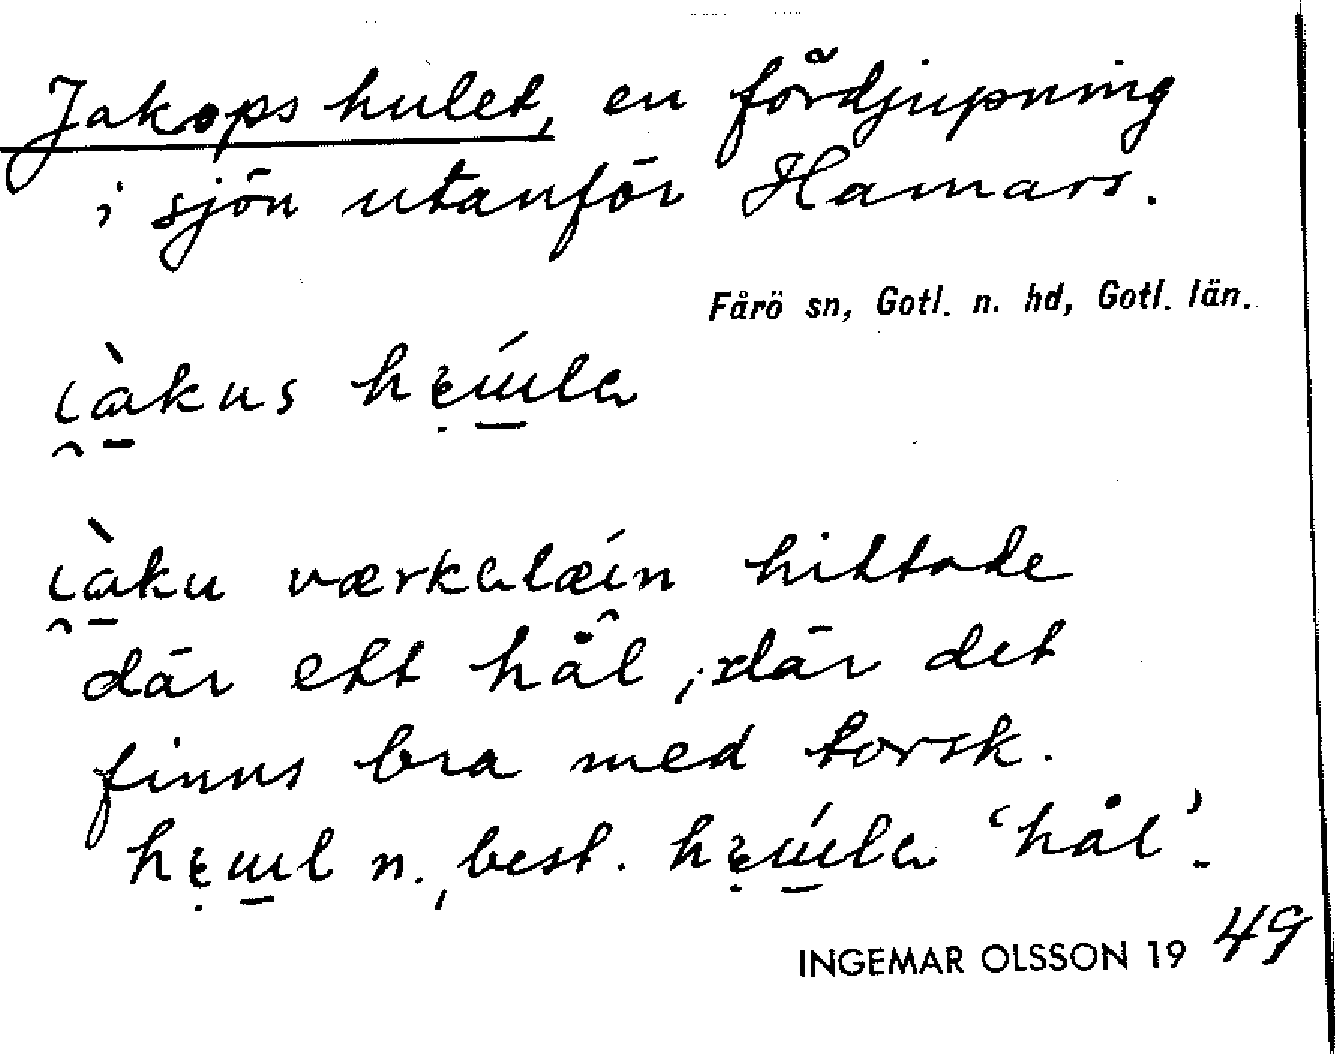 Jakops hulet, en fördjupning
i sjön utanför Hamars.
Fårö sn, Gotl. n. hd, Gotl. län.
i̯à̱kus hɛ̣ɯ̱́la
i̯à̱ku værkalæi̯n hittade
där ett hål, där det
finns bra med torsk.
hɛ̣ɯ̱l n., best. hɛ̣ɯ̱́la 'hål'.
INGEMAR OLSSON 1949